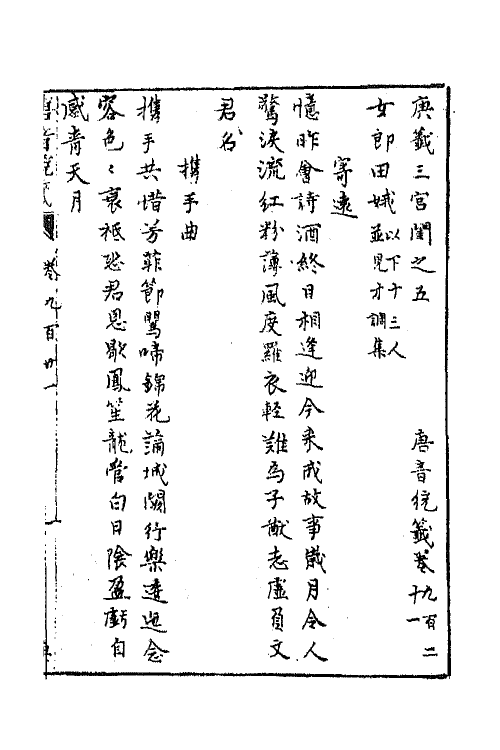 庚籤三宮閨之五　唐音統籤卷九百二十一
女郎田娥以下十三人並見才調集
寄遠
憶昨會詩酒終日相逢迎今來成故事歲月令人
驚淚流紅粉薄風度羅衣輕難為子猷志虛負文
君名
攜手曲
攜手共惜芳菲節鶯啼錦花滿城闕行樂逶迤念
容色〻衰秪恐君恩歇鳳笙龍管白日陰盈虧自
感青天月
唐音統籤　卷九百廿一